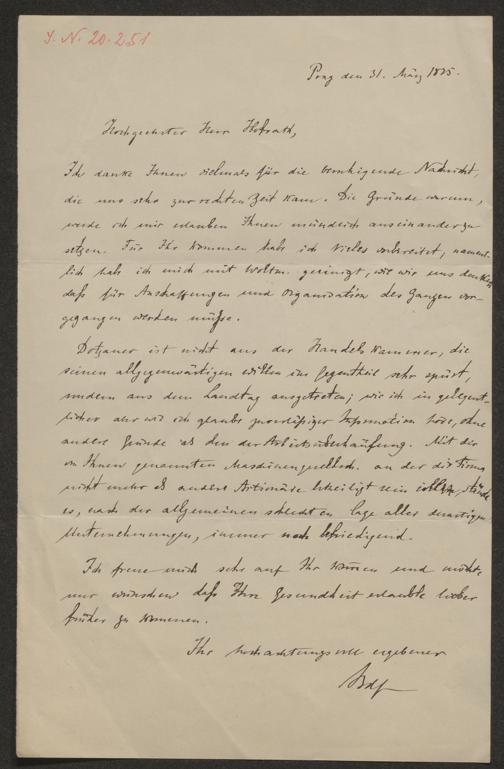 J. N. 20.251
Prag den 31. März 1885.
Hochgeehrter Herr Hofrath,
Ich danke Ihnen vielmals für die beruhigende Nachricht,
die uns sehr zur rechten Zeit kam. Die Gründe warum,
werde ich mir erlauben Ihnen mündlich auseinander zu
setzen. Für Ihr Kommen habe ich Vieles vorbereitet, nament-
lich habe ich mich mit geeinigt, wie wir uns
daß für Anschaffungen und Organisation des Ganzen vor-
gegangen werden müsse.
Dotzauer ist nicht aus der Handelskammer, die
seinen allgegenwärtigen Willen im Gegentheil sehr spürt,
sondern aus dem Landtag ausgetreten; wie ich in gelegent-
licher aber wie ich glaube zuverlässiger Information höre, ohne
andere Gründe als den der Arbeitsüberhäufung. Mit der
von Ihnen genannten Maschinengesellsch. an der die Firma
nicht mehr als andere Actionäre betheiligt sein sollte, stünde
es, nach der allgemeinen schlechten Lage aller derartigen
Unternehmungen, immer noch befriedigend.
Ich freue mich sehr auf Ihr Kommen und möchte
nur wünschen daß Ihre Gesundheit erlaubte lieber
früher zu kommen.
Ihr hochachtungsvoll ergebener